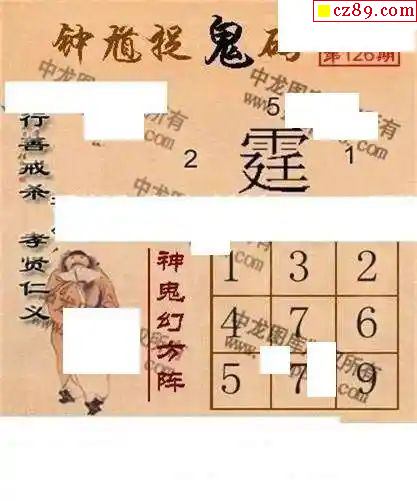 cz89.com
钟馗捉鬼码
第126期
5
2
霆
1
行善戒杀 孝贤仁义
神鬼幻方阵
1 3 2
4 7 6
5 7 9
中龙图库
所有